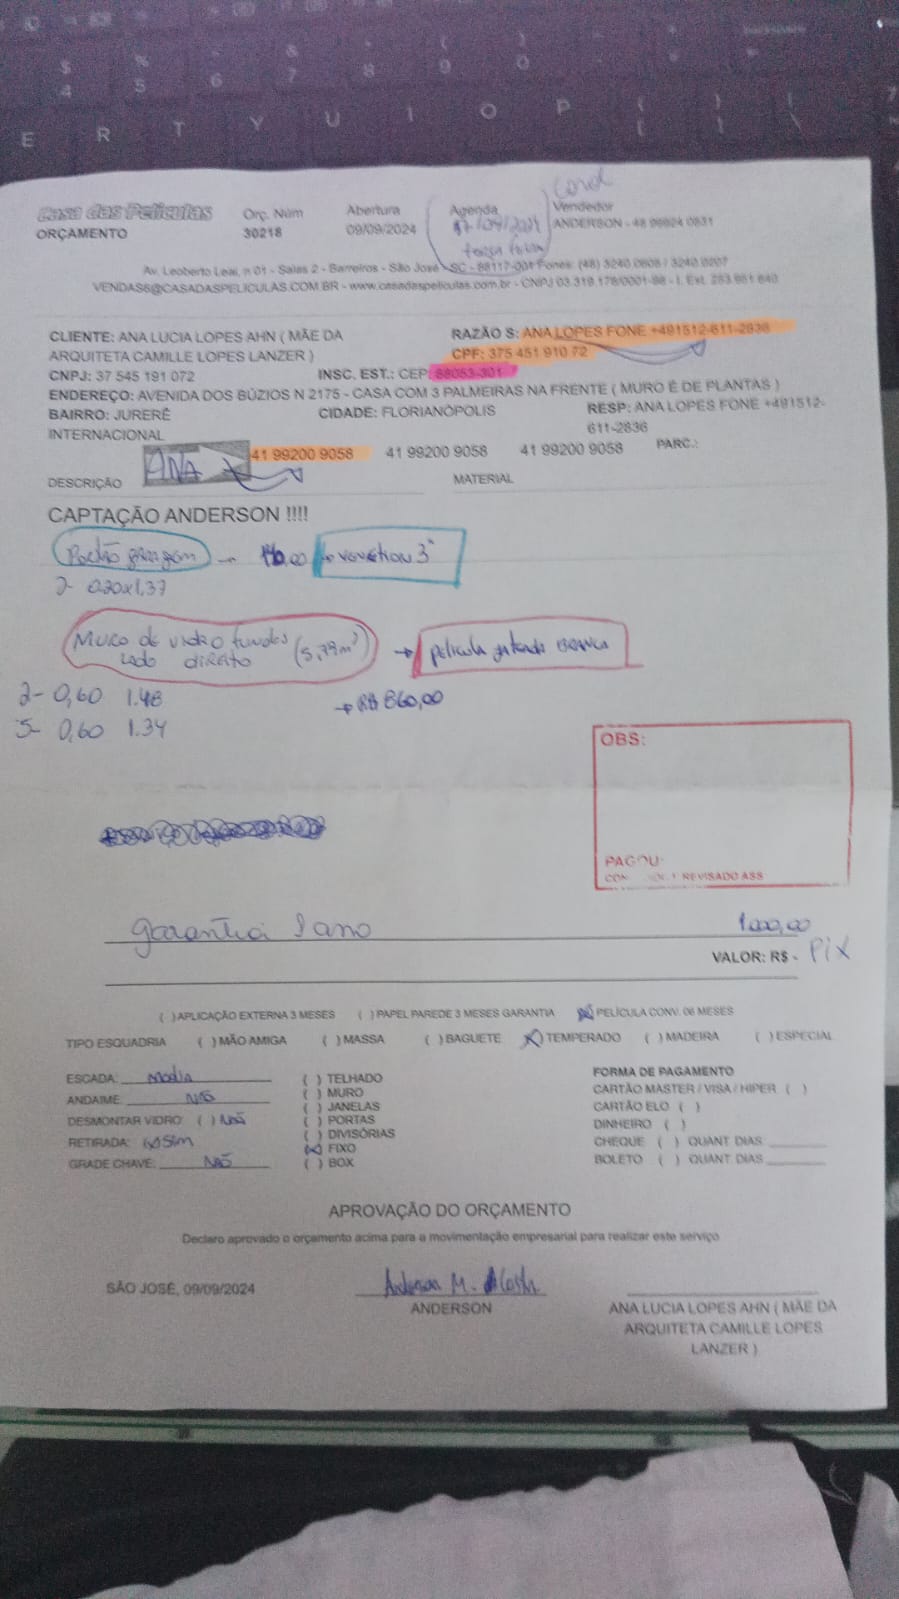 E R T Y U I O P
Casa das Películas
ORÇAMENTO
Orç. Núm
30218
Abertura
09/09/2024
Agenda
17/09/2024
terça feira
Vendedor
ANDERSON - 48 99924 0831
Av. Leoberto Leal, n 01 - Salas 2 - Barreiros - São José - SC - 88117-001 Fones: (48) 3240.0608 / 3240.0207
VENDAS6@CASADASPELICULAS.COM.BR - www.casadaspeliculas.com.br - CNPJ 03.319.178/0001-98 - I. Est. 253.951.640
CLIENTE: ANA LUCIA LOPES AHN ( MÃE DA
ARQUITETA CAMILLE LOPES LANZER )
RAZÃO S: ANA LOPES FONE +491512-611-2836
CPF: 375 451 910 72
CNPJ: 37 545 191 072
INSC. EST.: CEP: 88053-301
ENDEREÇO: AVENIDA DOS BÚZIOS N 2175 - CASA COM 3 PALMEIRAS NA FRENTE ( MURO É DE PLANTAS )
BAIRRO: JURERÊ
INTERNACIONAL
CIDADE: FLORIANÓPOLIS
RESP: ANA LOPES FONE +491512-
611-2836
ANA
41 99200 9058 41 99200 9058 41 99200 9058 PARC.:
DESCRIÇÃO
MATERIAL
CAPTAÇÃO ANDERSON !!!!
Portão garagem
3"
2- 0,20x1,37
Muro de vidro fundos
lado direito (5,79m²)
película jateada BRANCA
2- 0,60 1.48
R$ 860,00
5- 0,60 1.34
OBS:
PAGOU:
REVISADO ASS
garantia 1 ano
1.000,00
VALOR: R$ - PIX
( ) APLICAÇÃO EXTERNA 3 MESES ( ) PAPEL PAREDE 3 MESES GARANTIA (X) PELÍCULA CONV. 06 MESES
TIPO ESQUADRIA ( ) MÃO AMIGA ( ) MASSA ( ) BAGUETE (X) TEMPERADO ( ) MADEIRA ( ) ESPECIAL
ESCADA: média
ANDAIME: NÃO
DESMONTAR VIDRO: ( ) NÃO
RETIRADA: (X) Sim
GRADE CHAVE: NÃO
( ) TELHADO
( ) MURO
( ) JANELAS
( ) PORTAS
( ) DIVISÓRIAS
(X) FIXO
( ) BOX
FORMA DE PAGAMENTO
CARTÃO MASTER / VISA / HIPER ( )
CARTÃO ELO ( )
DINHEIRO ( )
CHEQUE ( ) QUANT DIAS
BOLETO ( ) QUANT DIAS
APROVAÇÃO DO ORÇAMENTO
Declaro aprovado o orçamento acima para a movimentação empresarial para realizar este serviço
SÃO JOSÉ, 09/09/2024
Anderson M.
ANDERSON
ANA LUCIA LOPES AHN ( MÃE DA
ARQUITETA CAMILLE LOPES
LANZER )